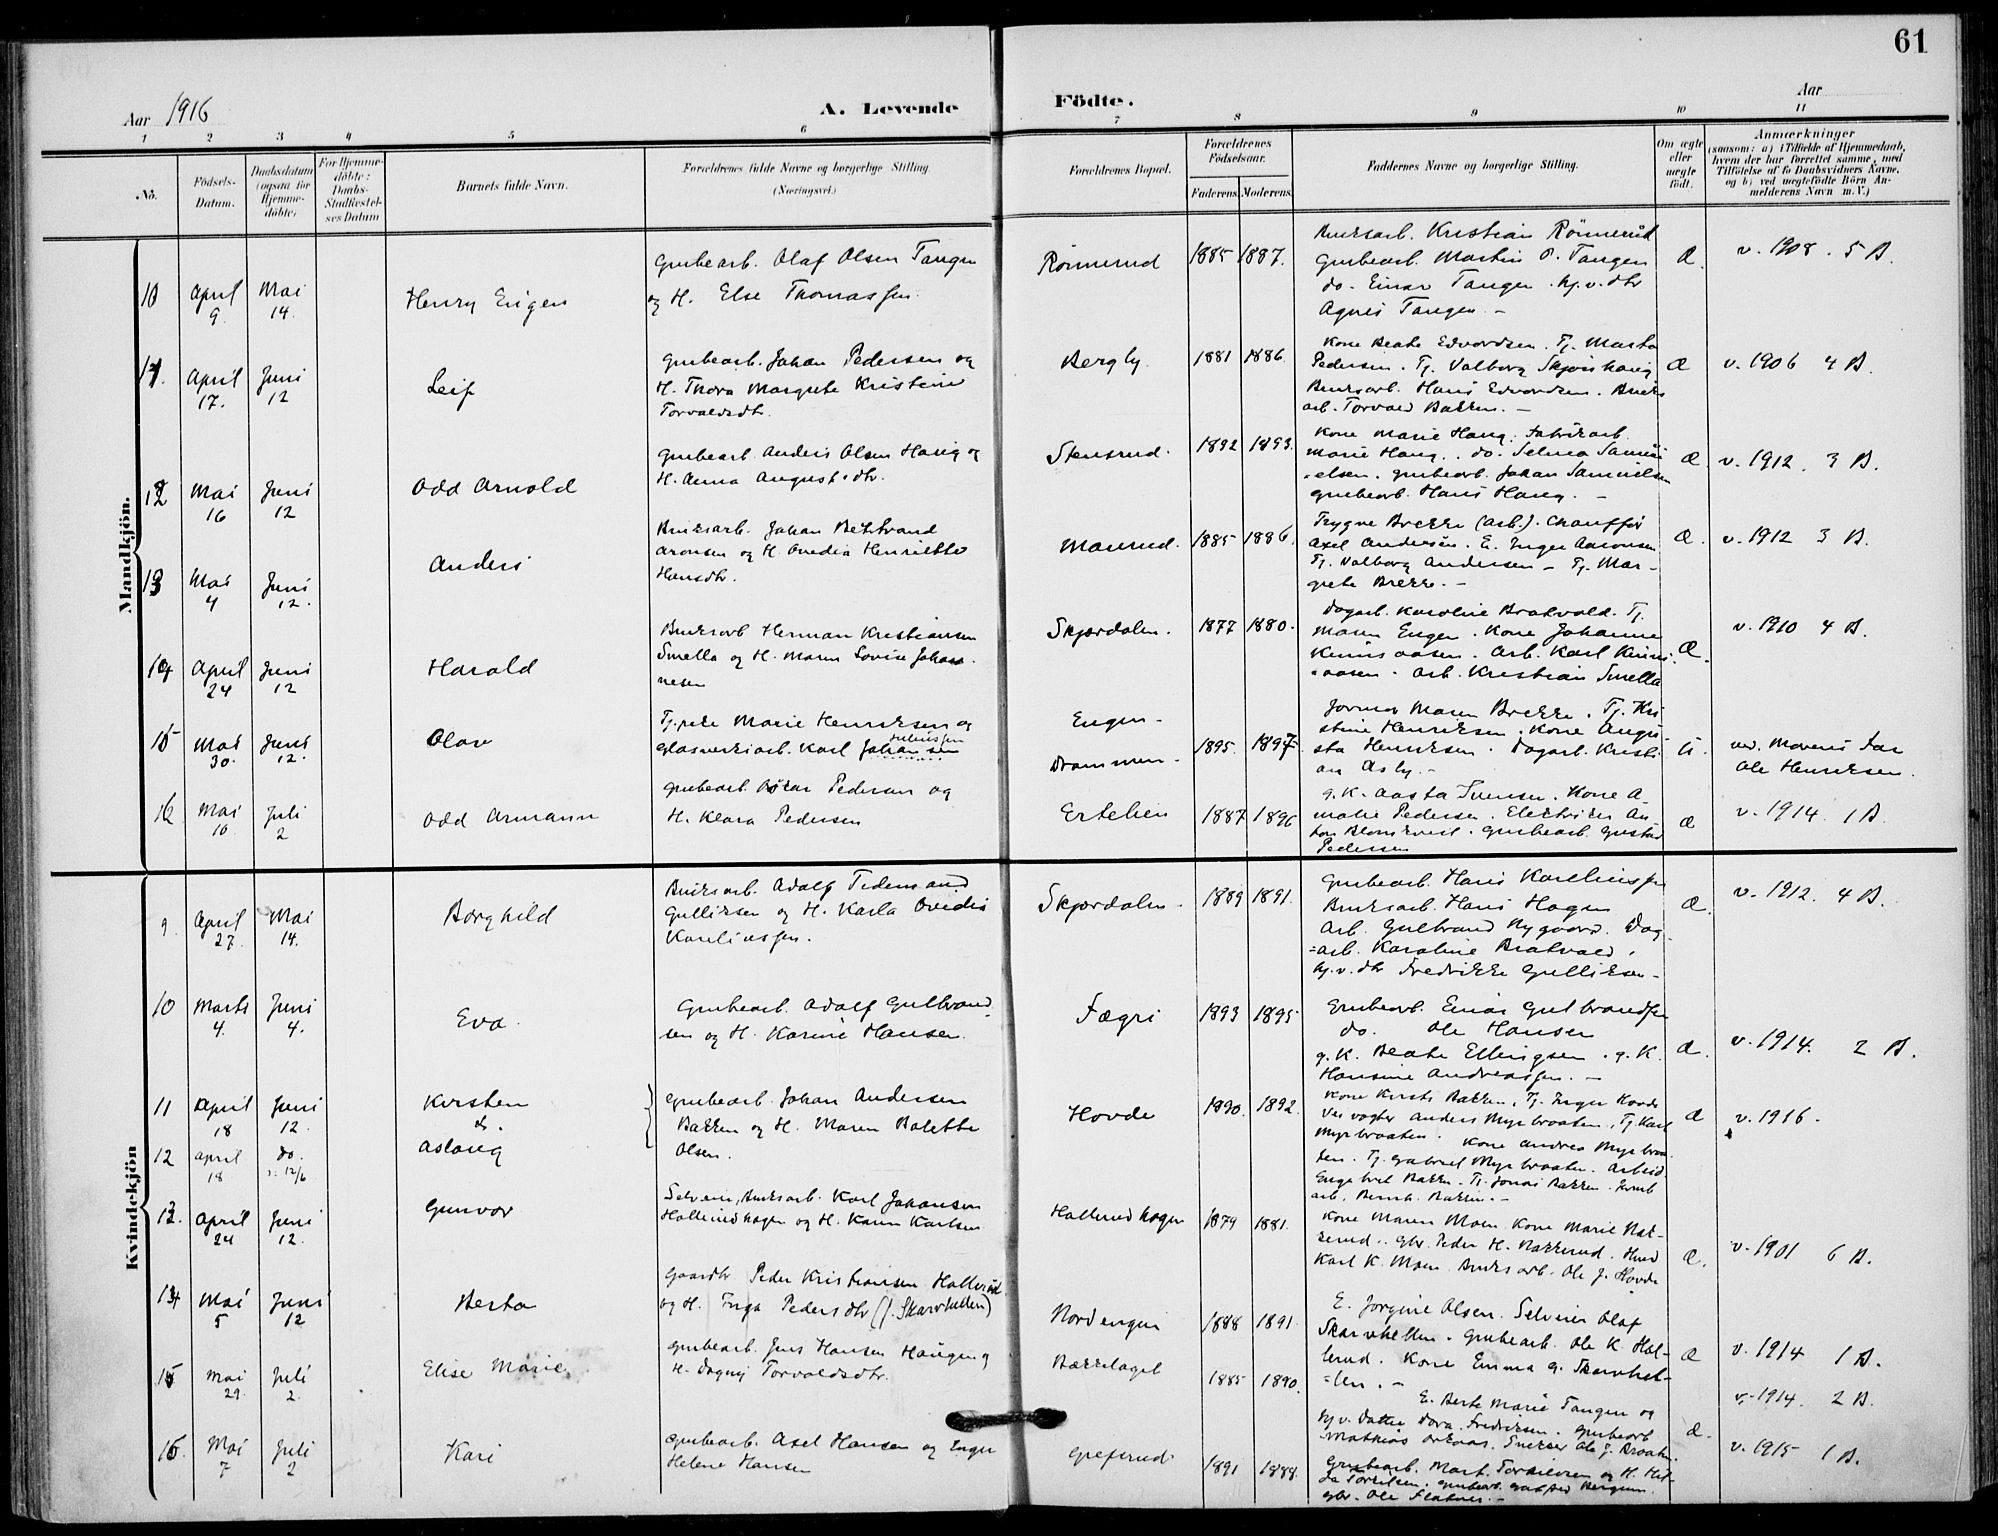 61
Aar 1916
A. Levende Födte.
Aar
1 2 3 4 5 6 7 8 9 10 11
No.
Födsels-Datum.
Daabsdatum (ogsaa for Hjemmedöbte)
For Hjemmedöbte: Daabs-Stadfæstelses Datum
Barnets fulde Navn.
Forældrenes fulde Navne og borgerlige Stilling (Næringsvei.)
Forældrenes Bopæl.
Forældrenes Födselsaar.
Faderens. Moderens.
Faddernes Navne og borgerlige Stilling.
Om ægte eller uægte födt.
Anmærkninger
(saasom: a) i Tilfælde af Hjemmedaab, hvem der har forrettet samme, med Tilföielse af to Daabsvidners Navne. og b) ved uægtefödte Börn Anmelderens Navn m. V.)
Mandkjön.
10 April 9. Mai 14. Henry Eugen
Grubearb. Olaf Olsen Tangen
og H. Else Thomassen.
Rönnerud 1885 1887.
Bruksarb. Kristian Rönnerud
Grubearb. Martin O. Tangen
do. Einar Tangen. hj.v. dtr
Agnes Tangen. —
Æ. v. 1908. 5 B.
11. April 17. Juni 12 Leif
Grubearb. Johan Pedersen og
H. Thora Margrete Kristine
Torvaldsdtr.
Bergly. 1881 1886.
Kone Beate Edvardsen. Tj. Marta
Pedersen. Tj. Valborg Skjönhaug
Bruksarb. Hans Edvardsen. Bruks
arb. Torvald Bakken. —
Æ v. 1906 4 B.
12 Mai 16 Juni 12 Odd Arnold
Grubearb. Anders Olsen Haug og
H. Anna Augustsdtr.
Stensrud. 1892 1893.
Kone Marie Haug. Fabrikarb.
Marie Haug. do. Selma Samu
elsen. Grubearb. Johan Samuelsen
Grubearb. Hans Haug. —
Æ v. 1912. 3 B.
13 Mai 4 Juni 12. Anders
Bruksarb. Johan
Aronsen og H. Ovedia Henriette
Hansdtr.
Moerud. 1885 1886.
Trygve Brekke (arb.). Chaufför
Axel Andersen. E. Inger Aaronsen
Tj. Valborg Andersen — Tj. Mar-
grete Brekke. —
Æ. v. 1912 3 B.
14 April 24 Juni 12 Harald
Bruksarb Herman Kristiansen
Smella og H. Maren Lovise Johan
nesen
Skjærdalen. 1877 1880.
Dagarb. Karoline Bratvald. Tj.
Maren Enger. Kone Johanne
aasen. Arb. Karl
aasen. Arb. Kristian Smella
Æ. v. 1910 4 B.
15 Mai 30. Juni 12. Olav
Tj.pike Marie Henriksen og
Glasverksarb. Karl Johansen
Juliussen
Engen —
Drammen. 1895. 1897
Jormor Maren Brekke. Tj. Kri
stine Henriksen. Kone Augu
sta Henriksen. Dagarb. Kristi
an Asby. —
U. ved. Moderens Far
Ole Henriksen.
16 Mai 10. Juli 2 Odd Armann
Grubearb. Oskar Pedersen og
H. Klara Pedersen
Ertelien 1887 1896
g.K. Aasta Svensen. Kone A-
malie Pedersen. Elektriker An
ton Blomkvist. Grubearb. Gustav
Pedersen
Æ v. 1914. 1 B.
Kvindekjön
9. April 27. Mai 14. Borghild
Bruksarb. Adolf Tidemand
Gulliksen og H. Karla Ovedia
Karelinssen.
Skjærdalen. 1889 1891.
Grubearb. Hans Karelinssen
Bruksarb. Hans Hagen
Arb. Gulbrand Nygaard. Dag
=arb. Karoline Bratvald.
hj.v. dtr Fredrikke Gulliksen —
Æ. v. 1912. 4 B.
10 Marts 4. Juni 4. Eva.
Grubearb. Adolf Gulbrand
sen og H. Karine Hansen.
Fægri 1893 1895
Grubearb. Einar Gulbrandsen
do. Ole Hansen
g.K. Beate Ellingsen. g.K.
Hansine Andreassen. —
Æ. v. 1914. 2 B.
11 April 18 Juni 12. Kirsten
&.
12 April 18 do. : 12/6 Aslaug
Grubearb. Johan Andersen
Bakken og H. Maren Bolette
Olsen.
Hovde 1890. 1892.
Kone Kirsti Bakken, Tj. Inger Hovde
Veivogter Anders Myrbraaten, Tj. Karl
Myrbraaten. Kone Andrea Myrbraa
ten. Tj. Gabriel Myrbraaten. Arbeid
Engebret Bakken. Tj. Jonas Bakken.
arb. Bernh. Bakken. —
Æ v. 1916.
13. April 24 Juni 12. Gunvor
Selveier, Bruksarb. Karl Johansen
Hallerudhagen og H. Karen Karlsen
Hallerudhagen 1879 1881.
Kone Maren Moen. Kone Marie Bak-
kerud. gbr. Peder H. Bakkerud.
Karl K. Moen. Bruksarb. Ole J. Hovde
Æ. v. 1901 6 B.
14 Mai 5 Juni 12 Berta
Gaardbr Peder Kristiansen Hallerud
og H. Inga Pedersdtr (f. Skarvhellen)
Nordengen 1888 1891.
E. Jorgine Olsen. Selveier Olaf
Skarvhellen. Grubearb. Ole K. Hal-
lerud. Kone Emma g. Skarvhel-
=len. —
Æ v. 1914 1 B.
15 Mai 29. Juli 2. Elise Marie
Grubearb. Jens Hansen Haugen og
H. Dagny Torvaldsdtr.
Bækkelaget 1885 1890.
E. Berte Marie Tangen og
hj.v. Datter Dora Fredriksen. Grubearb
Mathias . Snekker Ole J. Braaten
Æ. v. 1914. 2 B.
16. Mai 7 Juli 2 Kari
Grubearb. Axel Hansen og Inger
Helene Hansen
Grefsrud 1891 1888.
Grubearb. Mart. Torkildsen og H. Hil-
da Torkilsen. Grubearb. Bergum.
gbr. Ole Flaknes. —
v. 1915 1 B.